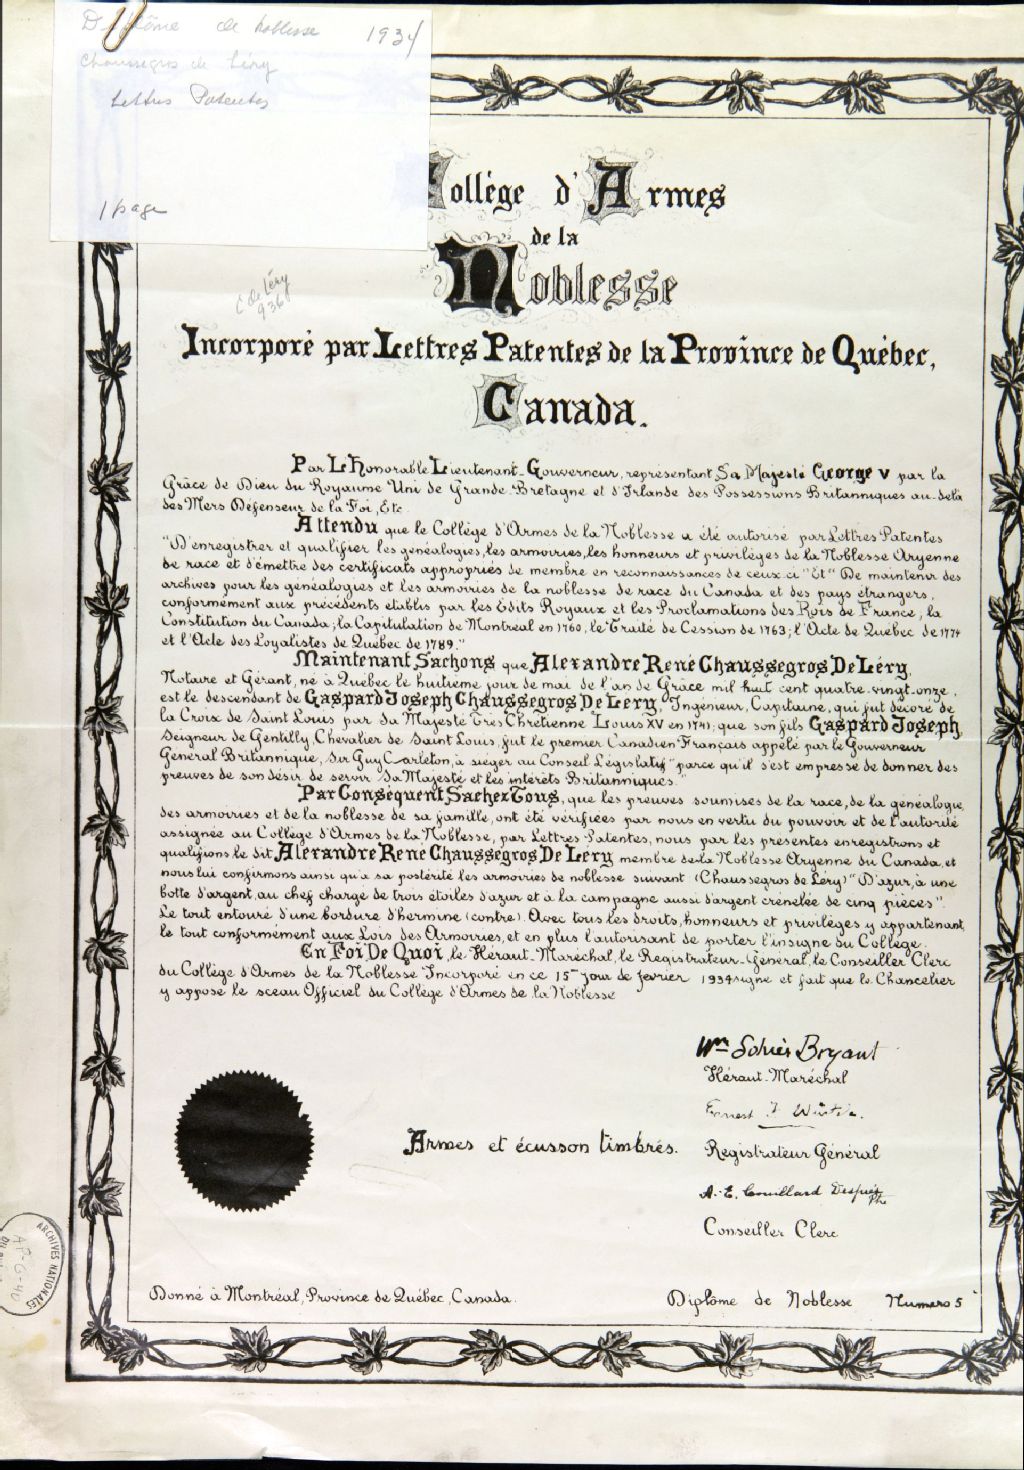 Diplôme de noblesse 1934
Chaussegros de Léry
Lettres Patentes
1 page
Collège d'Armes
de la
Noblesse
C de Léry
936
Incorporé par Lettres Patentes de la Province de Québec,
Canada.
Par L'Honorable Lieutenant-Gouverneur, représentant Sa Majesté George V par la
Grâce de Dieu du Royaume Uni de Grande-Bretagne et d'Irlande des Possessions Britanniques au-delà
des Mers Défenseur de la Foi, Etc.
Attendu que le Collège d'Armes de la Noblesse a été autorisé par Lettres Patentes
"D'enregistrer et qualifier les généalogies, les armoiries, les honneurs et privilèges de la Noblesse Aryenne
de race et d'émettre des certificats appropriés de membre en reconnaissances de ceux-ci" "Et" De maintenir des
archives pour les généalogies et les armoiries de la noblesse de race du Canada et des pays étrangers,
conformément aux précédents établis par les Edits Royaux et les Proclamations des Rois de France; la
Constitution du Canada; la Capitulation de Montréal en 1760, le Traité de Cession de 1763; l'Acte de Québec de 1774
et l'Acte des Loyalistes de Québec de 1789."
Maintenant Sachons que Alexandre René Chaussegros De Léry,
Notaire et Gérant, né à Québec le huitième jour de mai de l'an de Grâce mil huit cent quatre-vingt-onze,
est le descendant de Gaspard Joseph Chaussegros De Léry, Ingénieur, Capitaine, qui fut décoré de
la Croix de Saint Louis par Sa Majesté Très Chrétienne Louis XV en 1741, que son fils Gaspard Joseph,
Seigneur de Gentilly, Chevalier de Saint Louis, fut le premier Canadien Français appelé par le Gouverneur
Général Britannique, Sir Guy Carleton, à siéger au Conseil Législatif "parce qu'il s'est empressé de donner des
preuves de son désir de servir Sa Majesté et les intérêts Britanniques."
Par Conséquent Sachez Tous, que les preuves soumises de la race, de la généalogie,
des armoiries et de la noblesse de sa famille, ont été vérifiées par nous en vertu du pouvoir et de l'autorité
assignée au Collège d'Armes de la Noblesse, par Lettres Patentes, nous par les présentes enregistrons et
qualifions le dit Alexandre René Chaussegros De Léry membre de la Noblesse Aryenne du Canada, et
nous lui confirmons ainsi qu'à sa postérité les armoiries de noblesse suivant (Chaussegros de Léry) "D'azur, à une
botte d'argent, au chef chargé de trois étoiles d'azur et à la campagne aussi d'argent crénelée de cinq pièces".
Le tout entouré d'une bordure d'hermine (contre). Avec tous les droits, honneurs et privilèges y appartenant,
le tout conformément aux Lois des Armoiries, et en plus l'autorisant de porter l'insigne du Collège.
En Foi De Quoi, le Héraut-Maréchal, le Registrateur-Général, le Conseiller Clerc
du Collège d'Armes de la Noblesse Incorporé en ce 15me jour de février 1934 signe et fait que le Chancelier
y appose le sceau Officiel du Collège d'Armes de la Noblesse
Wm Bryant
Héraut-Maréchal
Ernest
Armes et écusson timbrés.
Registrateur Général
A.-E. Couillard Després Ptre
Conseiller Clerc
ARCHIVES NATIONALES
AP-G-40
Donné à Montréal, Province de Québec, Canada.
Diplôme de Noblesse Numero 5